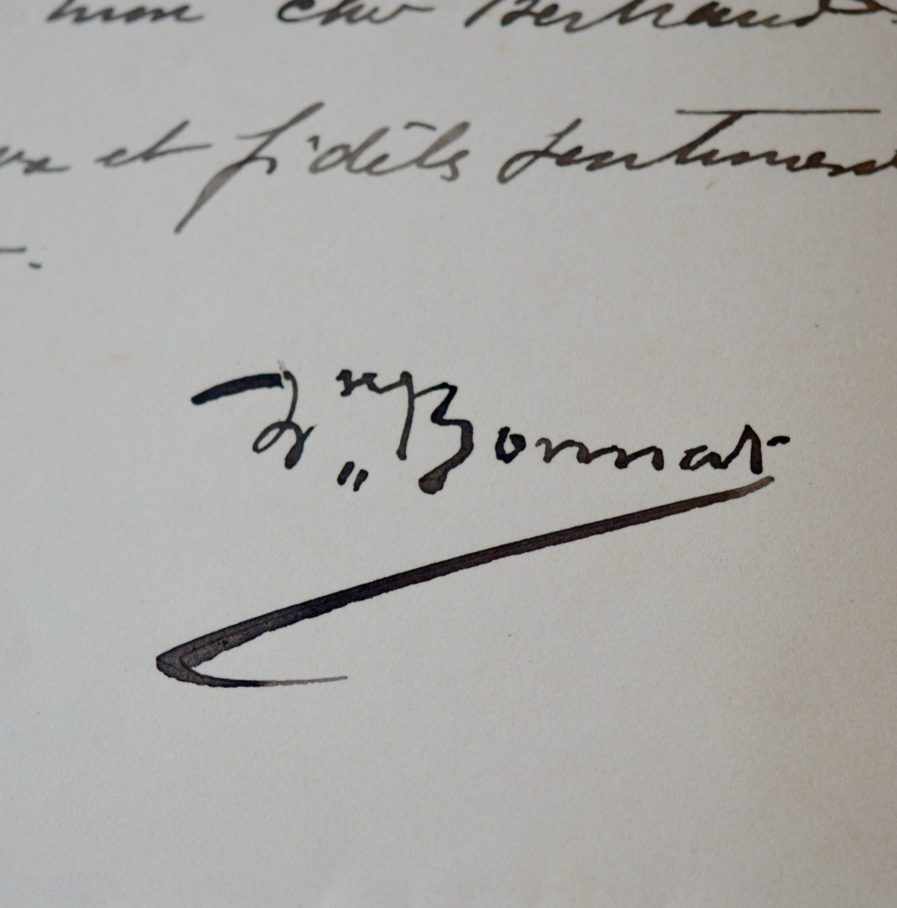 mon cher Bertrand
et fidèls sentiment
Ln Bonnat